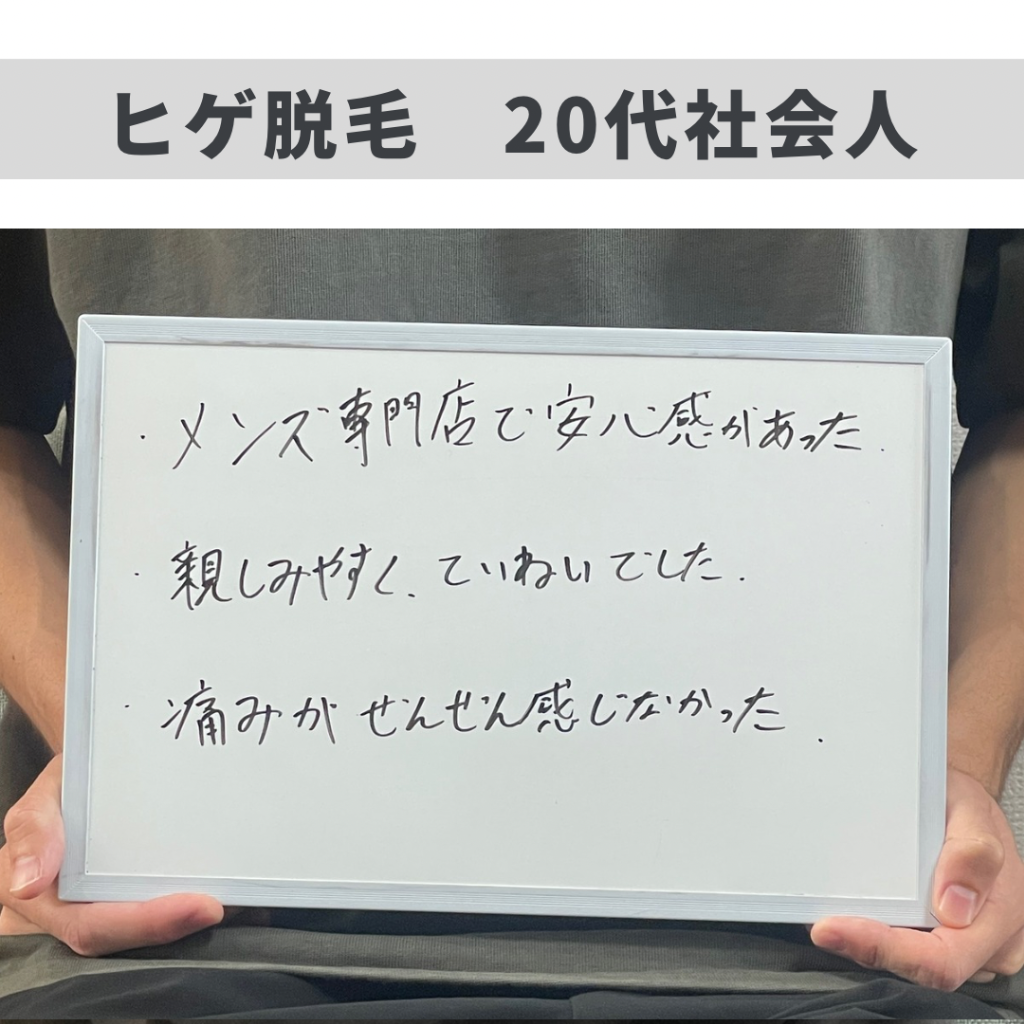 ヒゲ脱毛　20代社会人
・メンズ専門店で安心感があった.
・親しみやすく、ていねいでした.
・痛みがぜんぜん感じなかった.